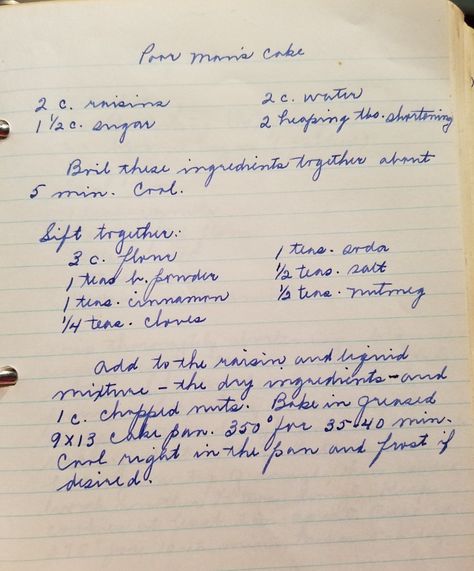 Poor Man's Cake
2 c. raisins 2 c. water
1 1/2 c. sugar 2 heaping tbs. shortening
Boil these ingredients together about
5 min. Cool.
Sift together:
3 c. flour 1 teas. soda
1 teas b. powder 1/2 teas. salt
1 teas. cinnamon 1/2 teas. nutmeg
1/4 teas. cloves
Add to the raisin and liquid
mixture - the dry ingredients - and
1 c. chopped nuts. Bake in greased
9x13 cake pan. 350° for 35-40 min.
Cool right in the pan and frost if
desired.